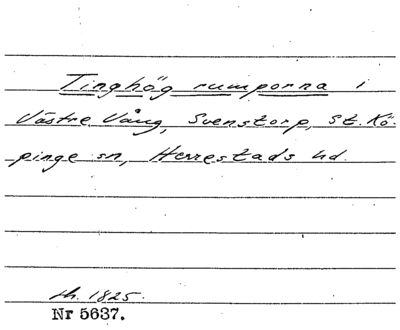 Tinghög rumporna i
Västre Vång, Svenstorp, St. Kö-
pinge sn, Herrestads hd.
th. 1825.
Nr 5637.